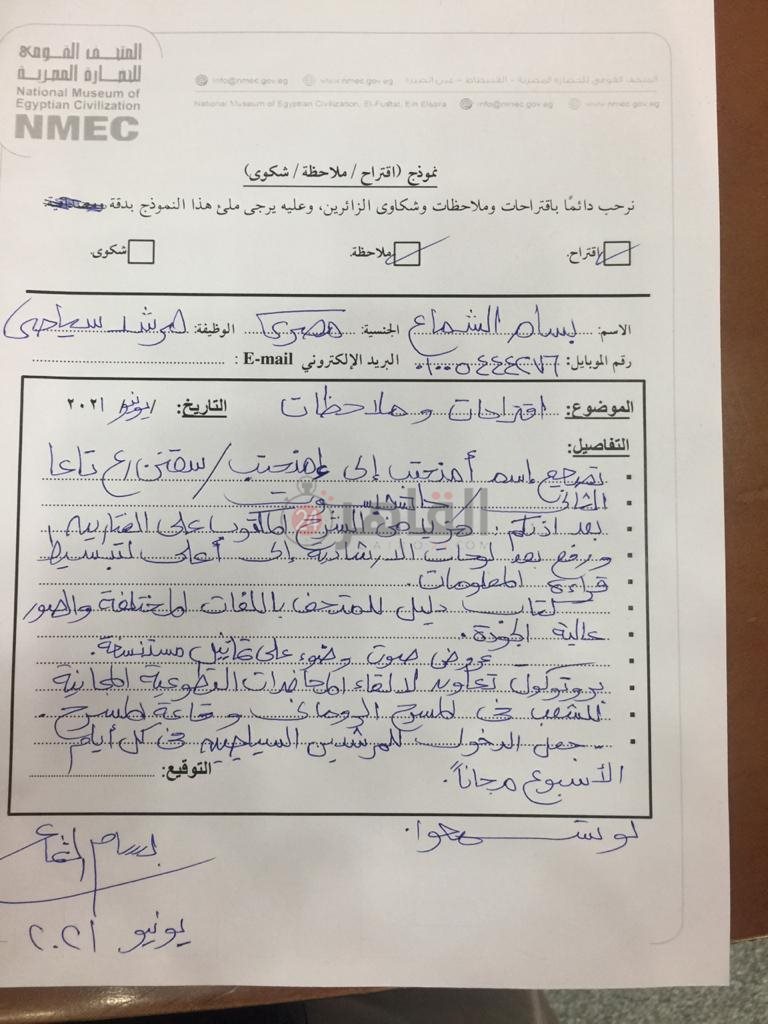 المتحف القومي
للحضارة المصرية
National Museum of
Egyptian Civilization
NMEC
info@nmec.gov.eg www.nmec.gov.eg المتحف القومي للحضارة المصرية - الفسطاط - عين الصيرة
National Museum of Egyptian Civilization, El-Fustat, Ein Elseira info@nmec.gov.eg www.nmec.gov.eg
نموذج (اقتراح / ملاحظة / شكوى)
نرحب دائمًا باقتراحات وملاحظات وشكاوى الزائرين، وعليه يرجى ملئ هذا النموذج بدقة
اقتراح. ملاحظة. شكوى.
الاسم: بسام الشماع الجنسية: مصرى الوظيفة: مرشد سياحى
رقم الموبايل: البريد الإلكتروني E-mail :
الموضوع: اقتراحات وملاحظات التاريخ: يونيو/ ٢٠٢١
التفاصيل:
اسم أمنحتب إلى إمنحتب / سقنن رع تاعا
الثانى
بعد اذنكم. الشرح المكتوب على الڤتارين
ورفع بعد لوحات الارشادية إلى أعلى لتبسيط
قراءة المعلومات.
كتاب دليل للمتحف باللغات المختلفة والصور
عالية الجودة.
عروض صوت وضوء على تماثيل مستنسخة.
بروتوكول تعاون لالقاء المحاضرات التطوعية المجانية
للشعب فى المسرح الرومانى وقاعة المسرح.
جعل الدخول للمرشدين السياحيين فى كل أيام
الأسبوع مجاناً.
التوقيع:
لو تسمحوا.
بسام الشماع
يونيو ٢٠٢١
القاهرة 24